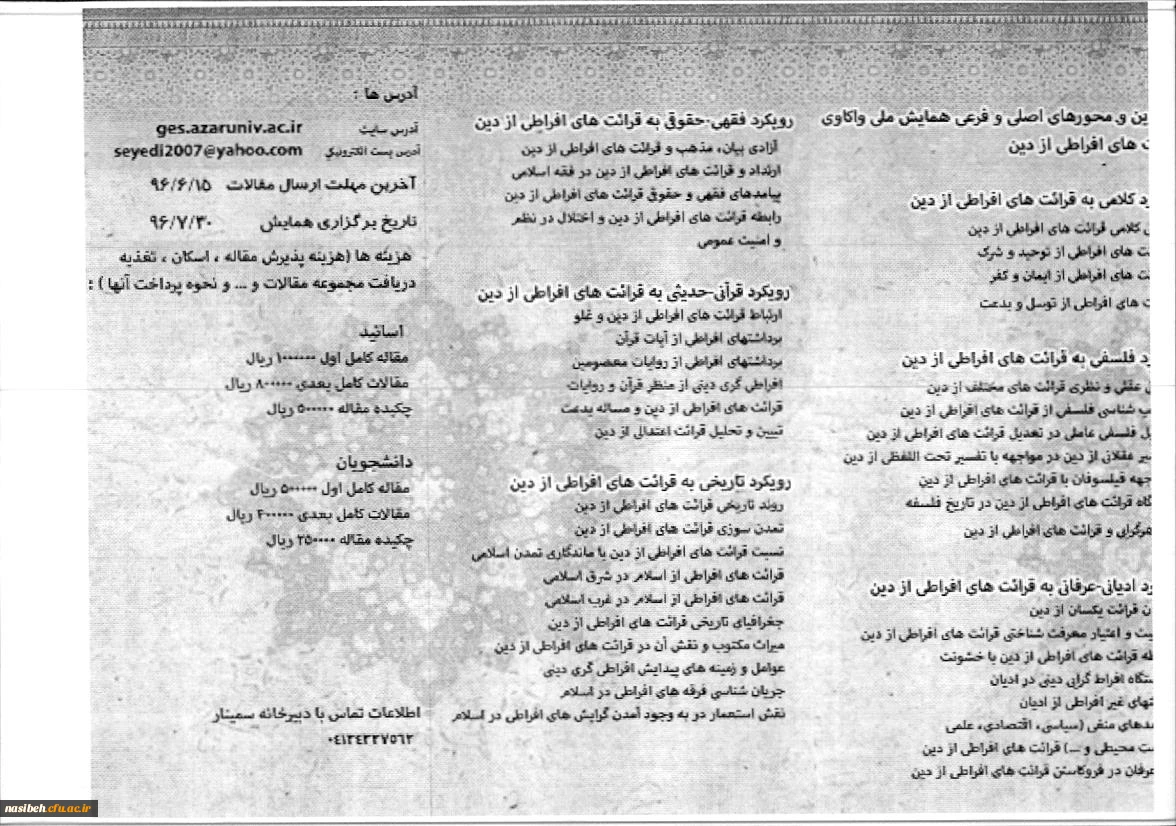 ین و محورهای اصلی و فرعی همایش ملی واکاوی
ت های افراطی از دین
د کلامی به قرائت های افراطی از دین
ی کلامی قرائت های افراطی از دین
ت های افراطی از توحید و شرک
ت های افراطی از ایمان و کفر
ت های افراطی از توسل و بدعت
د فلسفی به قرائت های افراطی از دین
ی عقلی و نظری قرائت های مختلف از دین
ب شناسی فلسفی از قرائت های افراطی از دین
یل فلسفی عاملی در تعدیل قرائت های افراطی از دین
یر عقلانی از دین در مواجهه با تفسیر تحت اللفظی از دین
جهه فیلسوفان با قرائت های افراطی از دین
گاه قرائت های افراطی از دین در تاریخ فلسفه
هرگرایی و قرائت های افراطی از دین
د ادیانی-عرفانی به قرائت های افراطی از دین
ن قرائت یکسان از دین
یت و اعتبار معرفت شناختی قرائت های افراطی از دین
طه قرائت های افراطی از دین با خشونت
ستگاه افراط گرایی دینی در ادیان
تهای غیر افراطی از ادیان
مدهای منفی (سیاسی، اقتصادی، علمی
ست محیطی و ...) قرائت های افراطی از دین
عرفان در فروکاستن قرائت های افراطی از دین
رویکرد فقهی-حقوقی به قرائت های افراطی از دین
آزادی بیان، مذهب و قرائت های افراطی از دین
ارتداد و قرائت های افراطی از دین در فقه اسلامی
پیامدهای فقهی و حقوقی قرائت های افراطی از دین
رابطه قرائت های افراطی از دین و اختلال در نظم
و امنیت عمومی
رویکرد قرآنی-حدیثی به قرائت های افراطی از دین
ارتباط قرائت های افراطی از دین و غلو
برداشتهای افراطی از آیات قرآن
برداشتهای افراطی از روایات معصومین
افراطی گری دینی از منظر قرآن و روایات
قرائت های افراطی از دین و مساله بدعت
تبیین و تحلیل قرائت اعتدالی از دین
رویکرد تاریخی به قرائت های افراطی از دین
روند تاریخی قرائت های افراطی از دین
تمدن سوزی قرائت های افراطی از دین
نسبت قرائت های افراطی از دین با ماندگاری تمدن اسلامی
قرائت های افراطی از اسلام در شرق اسلامی
قرائت های افراطی از اسلام در غرب اسلامی
جغرافیای تاریخی قرائت های افراطی از دین
میراث مکتوب و نقش آن در قرائت های افراطی از دین
عوامل و زمینه های پیدایش افراطی گری دینی
جریان شناسی فرقه های افراطی در اسلام
نقش استعمار در به وجود آمدن گرایش های افراطی در اسلام
آدرس ها :
آدرس سایت ges.azaruniv.ac.ir
آدرس پست الکترونیکی seyedi2007@yahoo.com
آخرین مهلت ارسال مقالات ۹۶/۶/۱۵
تاریخ برگزاری همایش ۹۶/۷/۳۰
هزینه ها (هزینه پذیرش مقاله ، اسکان ، تغذیه
دریافت مجموعه مقالات و ... و نحوه پرداخت آنها ) :
اساتید
مقاله کامل اول ۱۰۰۰۰۰۰ ریال
مقالات کامل بعدی ۸۰۰۰۰۰ ریال
چکیده مقاله ۵۰۰۰۰۰ ریال
دانشجویان
مقاله کامل اول ۵۰۰۰۰۰ ریال
مقالات کامل بعدی ۴۰۰۰۰۰ ریال
چکیده مقاله ۲۵۰۰۰۰ ریال
اطلاعات تماس با دبیرخانه سمینار
۰۴۱۳۴۳۲۷۵۶۲
nasibeh.cfu.ac.ir